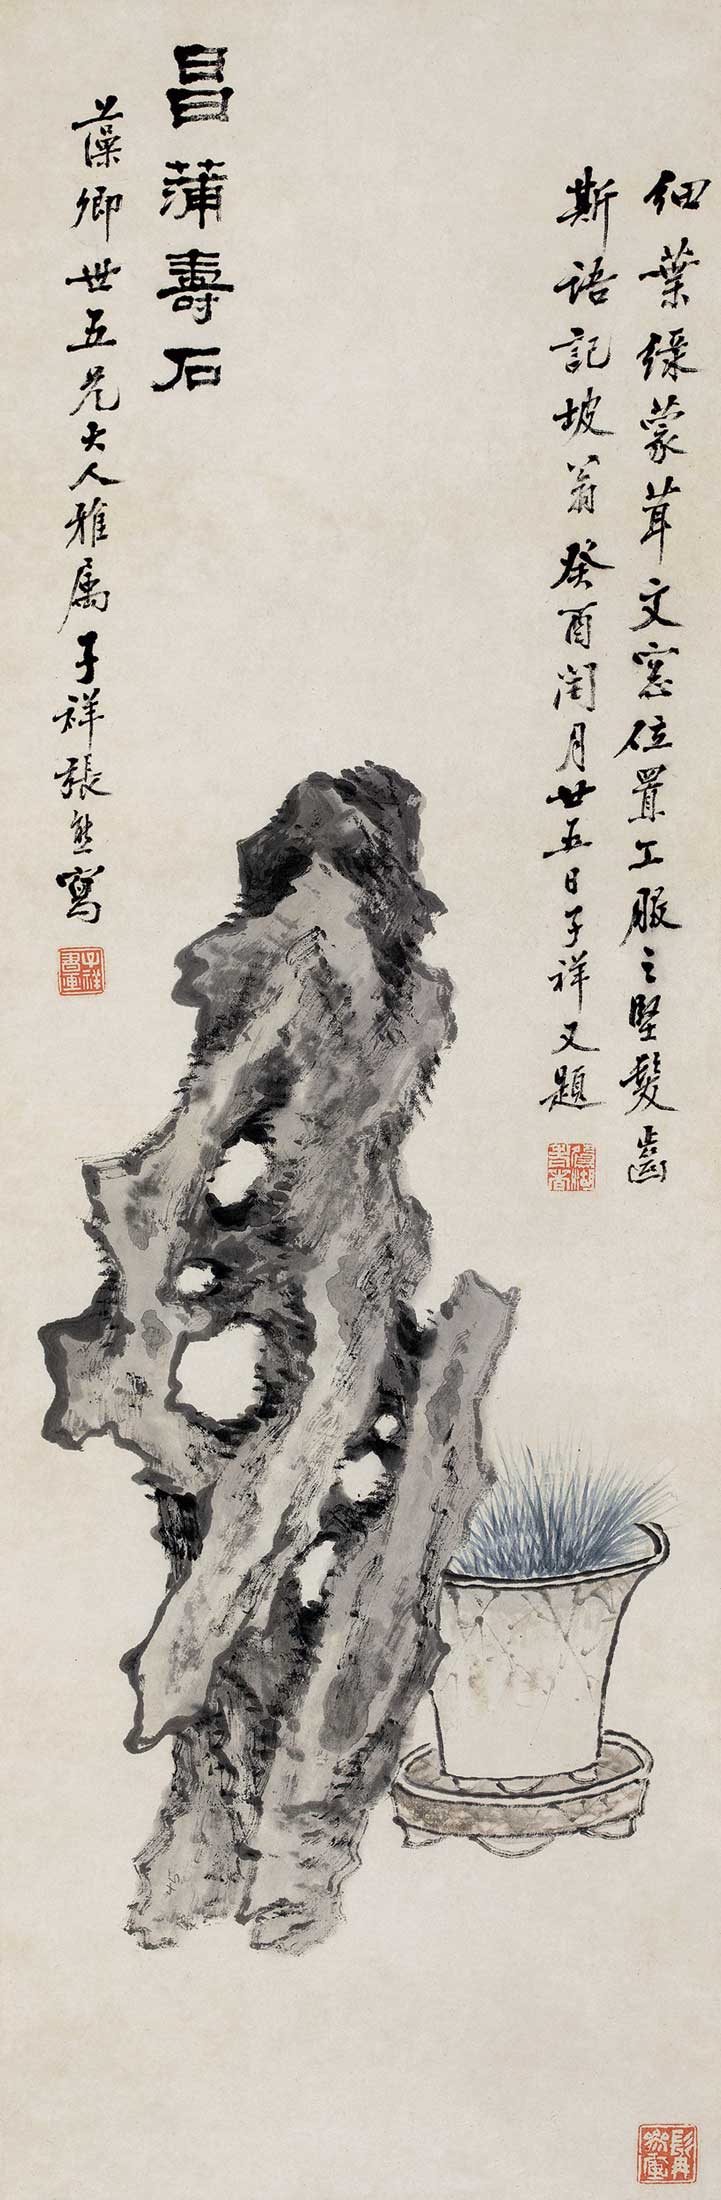 細葉綠蒙茸文窓位置工服之堅髮齒
斯語記坡翁癸酉閏月廿五日子祥又題
昌蒲壽石
藻卿世五兄大人雅属子祥張熊寫